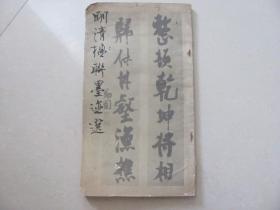 整頓乾坤將相
歸休壑漁樵
明清楹聯墨迹選